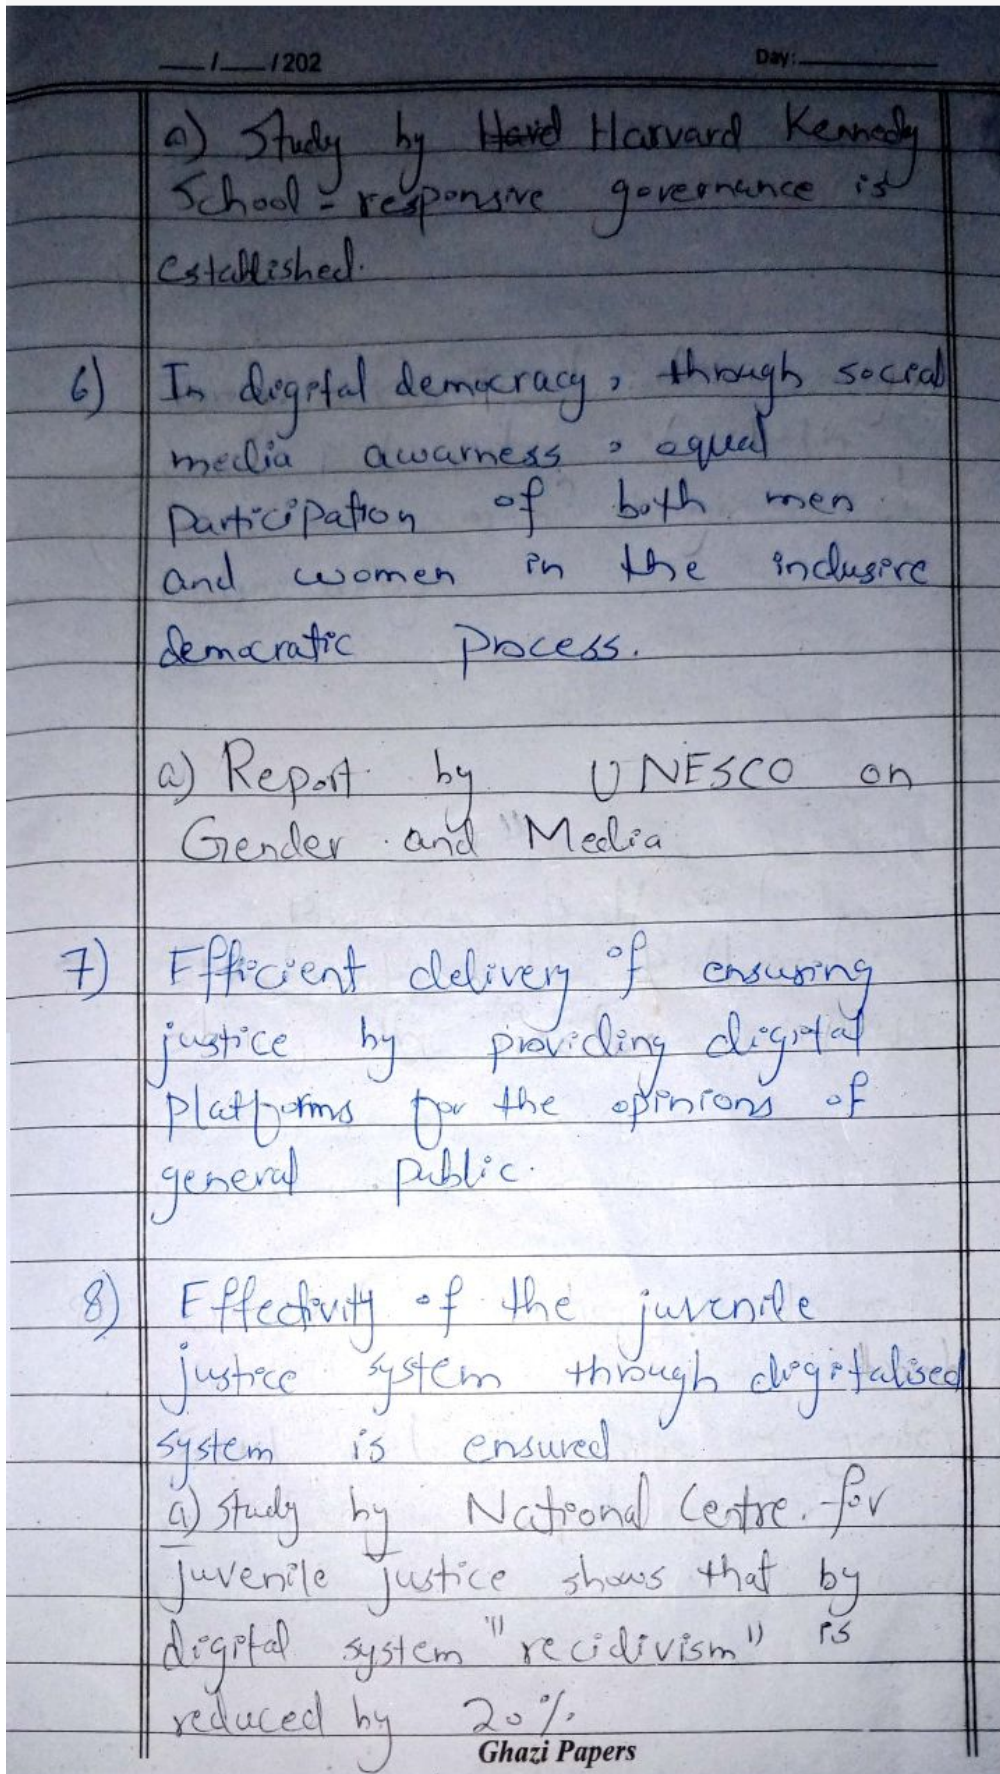 __/__/202 Day:________
a) Study by Havid Harvard Kennedy
School - responsive governance is
established.
6) In digital democracy, through social
media awarness, equal
participation of both men
and women in the inclusive
democratic process.
a) Report by UNESCO on
Gender and Media
7) Efficient delivery of ensuring
justice by providing digital
platforms for the opinions of
general public.
8) Effectivity of the juvenile
justice system through digitalised
system is ensured
a) Study by National Centre for
juvenile justice shows that by
digital system "recidivism" is
reduced by 20%.
Ghazi Papers